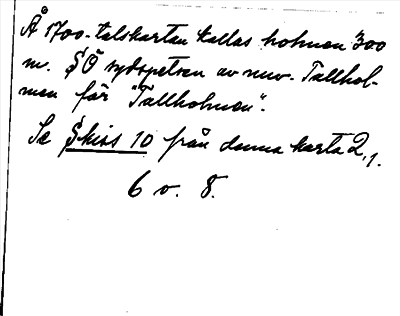 Å 1700-talskartan kallas holmen 300
m. SÖ sydspetsen av nuv. Tallhol-
men för "Tallholmen".
Se Skiss 10 från denna karta 2,1.
6 v. 8.